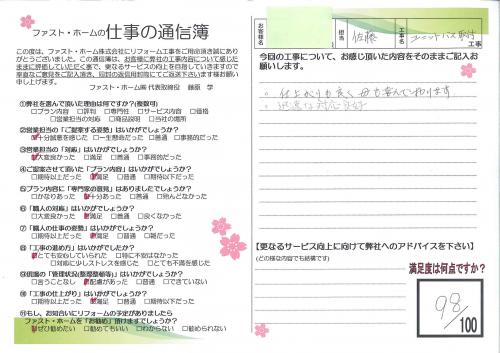 ファスト・ホームの仕事の通信簿
この度は、ファスト・ホーム株式会社にリフォーム工事をご用命頂き誠にあり
がとうございました。この通信簿は、お客様に弊社の工事内容について感じた
ままに評価していただく窓で、更なるサービスの向上を目指していきますので
率直なご意見をご記入頂き、同封の返信用封筒にてご返送下さいます様お願い
申し上げます。
ファスト・ホーム㈱ 代表取締役 藤原 学
①弊社を選んで頂いた理由は何ですか？(複数可)
□プラン内容 □評判 □専門性 □サービス内容 □価格
□営業担当の対応 □商品説明 □当社の場所
②営業担当の「ご提案する姿勢」はいかがでしょうか？
十分誠意を感じた □一生懸命だった □普通 □事務的だった
③営業担当の「対応」はいかがでしょうか？
大変良かった □満足 □普通 □事務的だった
④ご提案させて頂いた「プラン内容」はいかがでしたか？
□期待以上だった 満足 □普通 □期待以下だった
⑤プラン内容に「専門家の意見」はありましたでしょうか？
□かなりあった 十分あった □普通 □殆んどなかった
⑥「職人の対応」はいかがでしょうか？
□大変良かった 満足 □普通 □良くなかった
⑦「職人の仕事の姿勢」はいかがでしょうか？
□期待以上だった 満足 □普通 □雑だった
⑧「工事の進め方」はいかがでしたか？
とても安心していられた □特に不安はなかった
□対応に少しストレスを感じた □とても不満を感じた
⑨現場の「管理状況(整理整頓等)」はいかがでしょうか？
□言うことなし 配慮があった □普通 □できていない
⑩「工事の仕上がり」はいかがでしょうか？
□期待以上だった 満足 □普通 □期待以下だった
⑪もし、お知合いにリフォームの予定がありましたら
ファスト・ホームを「お勧め」頂けますでしょうか？
ぜひ勧めたい □勧めてもいい □わからない □勧められない
お客様名
担当
佐藤
工事名
ユニットバス取付
工事
今回の工事について、お感じ頂いた内容をそのままご記入
お願いします。
。仕上がりも良く 母も喜んでおります
。迅速な対応良好
【更なるサービス向上に向けて弊社へのアドバイスを下さい】
(どの様な内容でも結構です)
満足度は何点ですか？
98/100